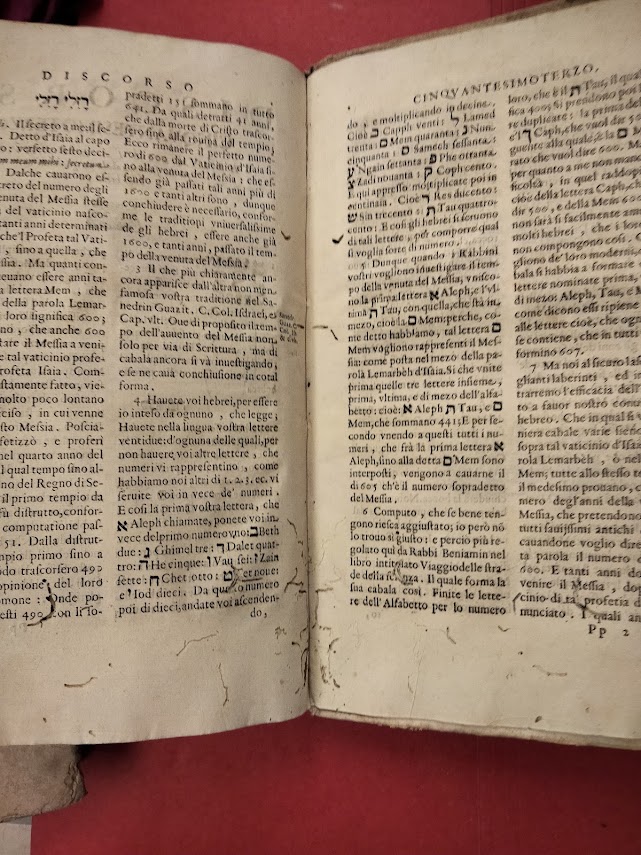 DISCORSO
רזלי רזלי
Il secreto a me, il se-
Detto d'Isaia al capo
verſetto ſeſto deci-
m meum mihi: ſecretum
Dalche cauarono eſſ
ecreto del numero degli
venuta del Meſſia ſteſſe
del vaticinio naſco-
tanti anni determinati
che 'l Profeta tal Vati-
, ſino a quella , che
Meſſia. Ma quanti con-
ceuano eſſere anni ta-
a lettera Mem , che
della parola Lemar-
loro ſignifica 600 ;
no , che anche 600
tare il Meſſia a veni-
e tal vaticinio profe-
feta Iſaia. Com-
ſtamente fatto, vie-
molto poco lontano
ciſo , in cui venne
ſto Meſſia. Poſcia-
fetizzò , e proferì
nel quarto anno del
l qual tempo ſino al-
no del Regno di Se-
il primo tempio da
fù diſtrutto, confor-
computatione paſ-
51. Dalla diſtrut-
mpio primo ſino a
do traſcorſero 490
opinione del loro
mone : Onde po-
eſti 490 con li ſo-
pradetti 151 ſommano in tutto
641. Da quali detratti 41 anni,
che dalla morte di Criſto traſcor-
ſero ſino alla rouina del tempio,
Ecco rimanere il perfetto nume-
ro di 600 dal Vaticinio d'Iſaia ſi-
no alla venuta del Meſſia ; che eſ-
ſendo già paſſati tali anni più di
1600 e tanti altri ſono , dunque
conchiudere è neceſſario, confor-
me le traditioni vniuerſaliſſime
de gli hebrei , eſſere anche già
1600, e tanti anni, paſſati il tem-
po della venuta del Meſſia.
3 Il che più chiaramente an-
cora appariſce dall'altra non men
famoſa voſtra traditione nel Sa-
nedrin Guazit. C. Col. Iſdrael, eſ.
Cap. vlt. Oue di propoſito il tem-
po dell'auuento del Meſſia non
ſolo per via di Scrittura , ma di
cabala ancora ſi và inueſtigando,
e ſe ne cauà concluſione in cotal
forma.
4 Hauete voi hebrei, per eſſere
io inteſo da ognuno , che legge;
Hauete nella lingua voſtra lettere
ventidue: d'ognuna delle quali, per
non hauere, voi altre lettere , che
numeri vi rappreſentino , come
habbiamo noi altri di 1. 2. 3. ec. vi
ſeruite voi in vece de' numeri.
E coſi la prima voſtra lettera, che
א Aleph chiamate, ponete voi in
vece del primo numero vno: ב Beth
due: ג Ghimel tre: ד Dalet quat-
tro: ה He cinque: ו Vau ſei: ז Zain
ſette: ח Chet otto: ט Tet noue:
e י Iod dieci. Da quello numero
poi di dieci, andate voi aſcenden-
do,
CINQVANTESIMOTERZO.
do , e moltiplicando in decine.
Cioè כ Caph venti: ל Lamed
trenta: מ Mem quaranta: נ Nun
cinquanta: ס Samech ſeſſanta:
ע Ngain ſettanta: פ Phe ottanta.
צ Zadi nouanta: ק Coph cento.
E qui appreſſo moltiplicate poi in
centinaia. Cioè ר Res ducento:
ש Sin trecento: ת Tau quattro-
cento: E coſi gli hebrei ſi ſeruono
di tali lettere, per comporre qual
ſi voglia ſorte di numero.
5 Dunque quando i Rabbini
voſtri vogliono inueſtigare il tem-
po della venuta del Meſſia, vniſco-
no la prima lettera א Aleph, e l'vl-
tima ת Tau, con quella, che ſtà in
mezo, cioè la ם Mem: perche, co-
me detto habbiamo , tal lettera ם
Mem vogliono rappreſenti il Meſ-
ſia: come poſta nel mezo della pa-
rola Lemarbèh d'Iſaia. Si che vnite
prima quelle tre lettere inſieme,
prima, vltima, e di mezo dell'alfa-
beto: cioè: א Aleph ת Tau, e ם
Mem, che ſommano 441; E per ſe-
condo vnendo a queſti tutti i nu-
meri, che frà la prima lettera א
Aleph, ſino alla detta ם Mem ſono
interpoſti , vengono a cauarne il
di 605 ch'è il numero ſopradetto
del Meſſia.
6 Computo , che ſe bene ten-
gono rieſca aggiuſtato; io però nō
lo trouo sì giuſto: e perciò più re-
golato quì da Rabbi Beniamin nel
libro intitolato Viaggio delle ſtra-
de della ſcienza. Il quale forma la
ſua cabala coſi. Finite le lette-
re dell'Alfabetto per lo numero
loro, che è il ת Tau, il qual
ca 400; Si prendono poi l
re duplicate: la prima de
è ך Caph, che vuol dir 500
guente alla quale, è la ם
rato che vuol dire 600. Ma
per quanto a me non man
ficoltà , in quel raddopp
cioè della lettera Caph, c
dir 500, e della Mem
non ſarà ſi facilmente am
molti hebrei , che i lor
non compongono coſi.
gliono de' loro moderni,
bala ſi habbia a formare
lettere nominate prima,
di mezo: Aleph, Tau, e M
come dicono eſſi ripiene
alle lettere cioè, che ognu
ſe contiene, che in tutti
formino 607.
7 Ma noi al ſicuro laſ
glianti laberinti , ed in
trarremo l'efficacia dell'
to a fauor noſtro contr
hebreo. Che in qual ſi v
niera cabale varie ſienſi
ſopra tal vaticinio d'Iſaia
rola Lemarbèh , ò nel
Mem; tutte allo ſteſſo te
il medeſimo prouano, c
mero degl'anni della v
Meſſia, che pretendono
tutti ſauiſſimi antichi
cauandone voglio dire
ta parola il numero
600. E tanti anni do
venire il Meſſia , dop
cinio di tal profetia d
nunciato . I quali an
Pp 2